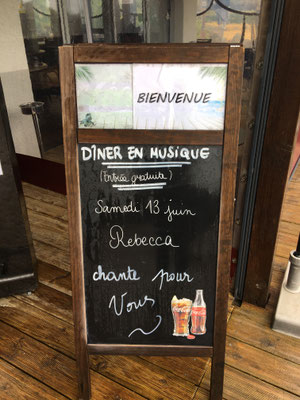 BIENVENUE
DÎNER EN MUSIQUE
(Entrée gratuite)
Samedi 13 juin
Rebecca
chante pour
Vous